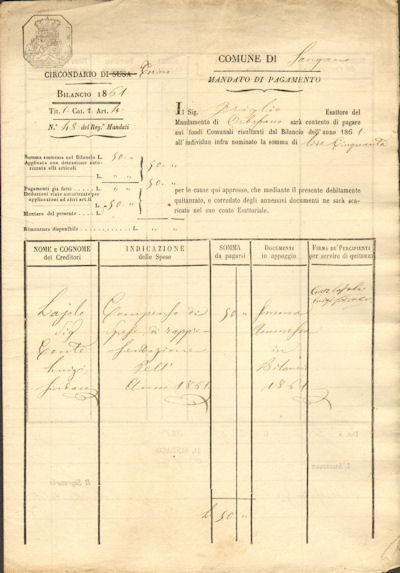 CIRCONDARIO DI SUSA Torino
BILANCIO 1861
Tit. 1 Cat. 2 Art. 4
N.° 48 del Reg.° Mandati
COMUNE DI Sangano
MANDATO DI PAGAMENTO
Il Sig. Esattore del
Mandamento di Orbassano sarà contento di pagare
sui fondi Comunali risultanti dal Bilancio dell'anno 1861
all'individuo infra nominato la somma di lire Cinquanta
Somma ammessa nel Bilancio L. 50 "
Applicata una deduzione autorizzata alli articoli
L. " "
50 "
Pagamenti già fatti L. " "
Deduzioni state autorizzate per applicazioni ad altri art.li
Montare del presente 50 "
50 "
Rimanenza disponibile L. " "
per le cause qui appresso, che mediante il presente debitamente
quitanzato, e corredato degli annessivi documenti ne sarà scaricato nel suo conto Esattoriale.
NOME E COGNOME dei Creditori
INDICAZIONE delle Spese
SOMMA da pagarsi
DOCUMENTI in appoggio
FIRMA DE' PERCIPIENTI per servire di quitanza
Lajolo
Sig.
Conte
Luigi
Sindaco
Compenso di
spese di rappresentazione
Dell'
Anno 1861
50 "
Somma
Ammessa
in
Bilancio
1861
Conte Lajolo
Luigi Sindaco
L. 50 "
IL SINDACO
Il Segretario